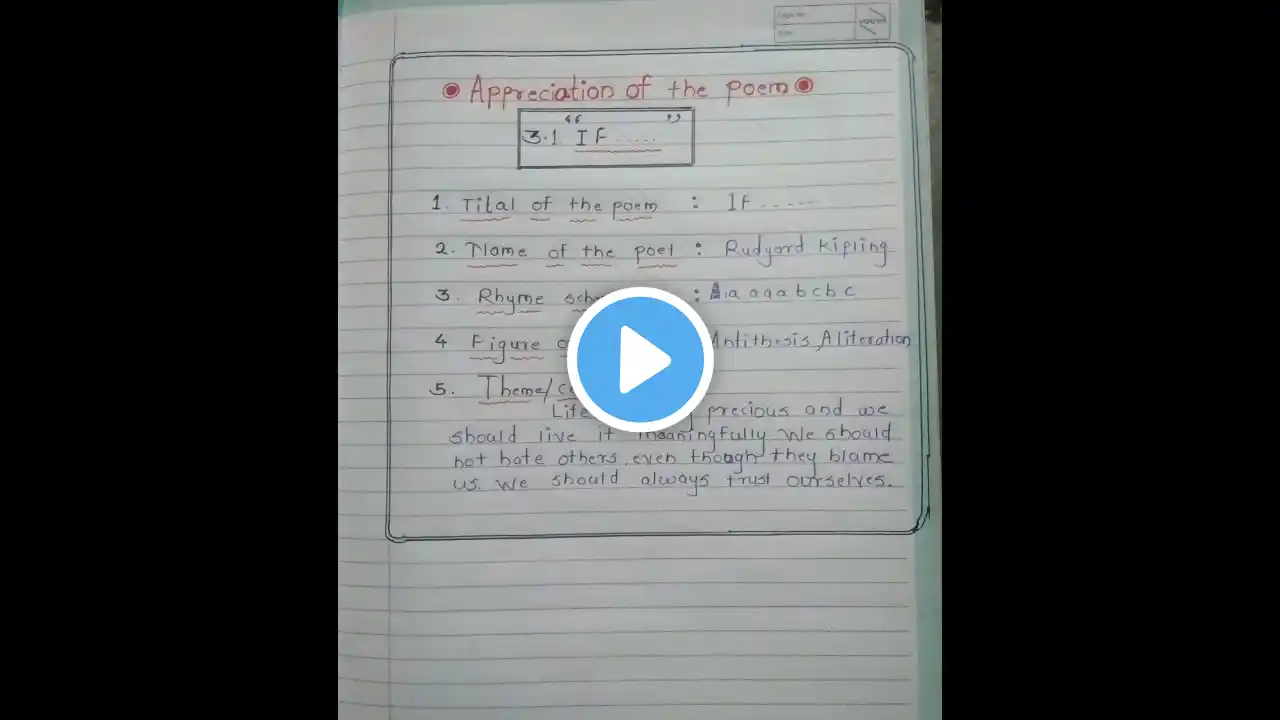 Appreciation of the poem
3.1 "IF ....."
1. Tital of the poem : IF ......
2. Name of the poet : Rudyard Kipling
3. Rhyme : a a a b c b c
4 Figure Antithesis, Aliteration
5. Theme/
Life precious and we
should live it meaningfully We should
not hate others even though they blame
us. We should always trust ourselves.